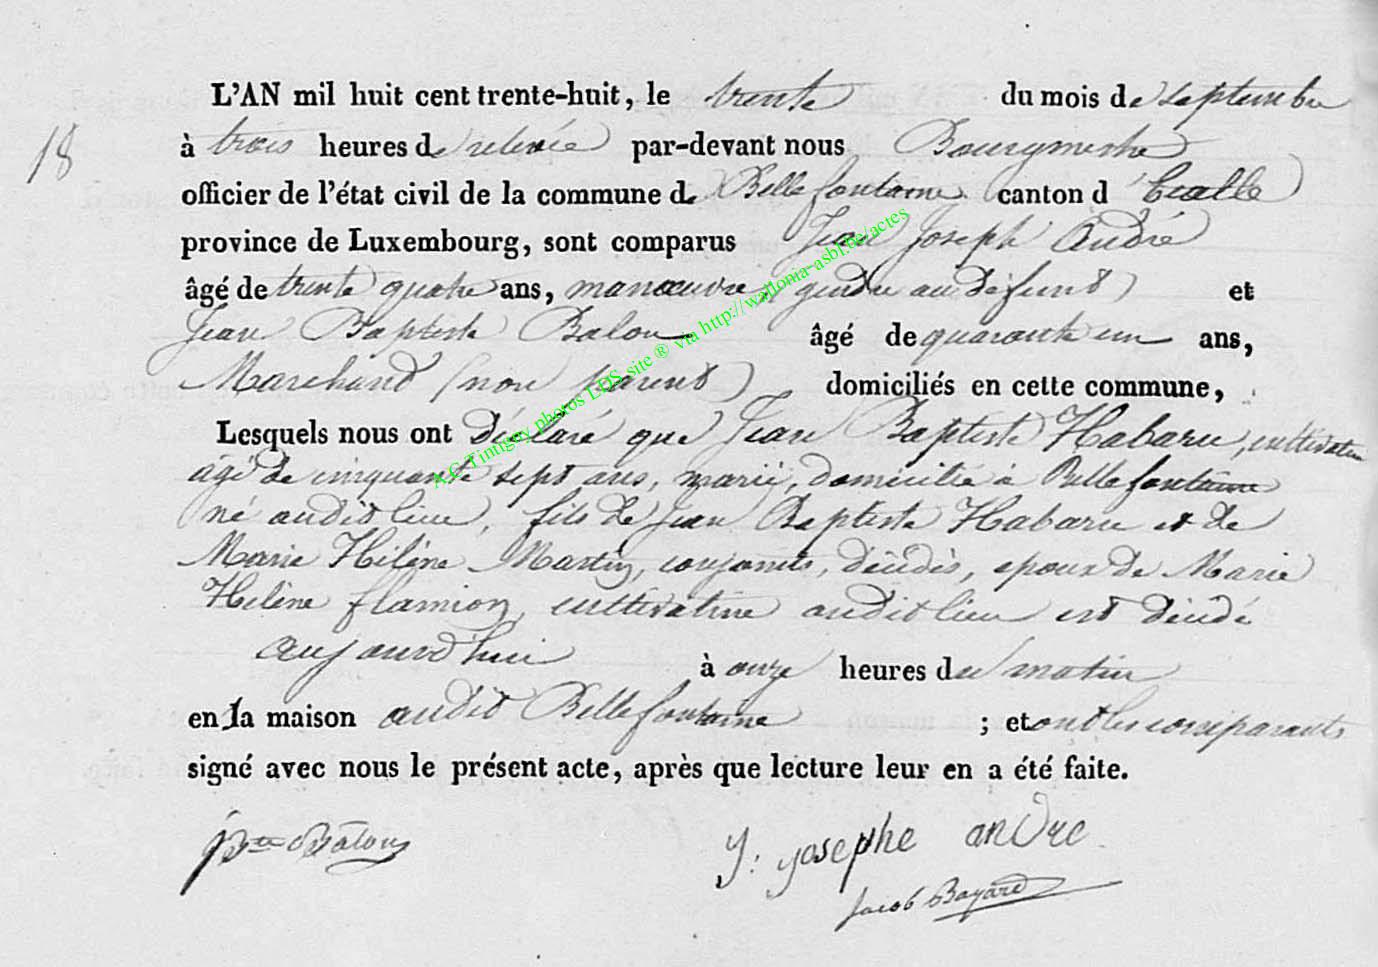 L'AN mil huit cent trente-huit, le trente du mois de septembre
18
à trois heures de relevée par-devant nous Bourgmestre
officier de l'état civil de la commune de Bellefontaine canton d' Etalle
province de Luxembourg, sont comparus Jean Joseph André
âgé de trente quatre ans, manœuvre, gendre au défunt et
Jean Baptiste Balon âgé de quarante un ans,
Marchand (non parent) domiciliés en cette commune,
Lesquels nous ont déclaré que Jean Baptiste Habaru, cultivateur
âgé de cinquante sept ans, marié, domicilié à Bellefontaine
né audit lieu, fils de Jean Baptiste Habaru et de
Marie Hélène Martin, conjoints, décédés, epoux de Marie
Helène flamion, cultivatrice audit lieu est décédé
aujourd'hui à onze heures du matin
en la maison audit Bellefontaine ; et ont les comparants
signé avec nous le présent acte, après que lecture leur en a été faite.
JBte Balon J: josephe andre
Jacob Bayard
A.G Tintigny photos LDS, site ® via http://wallonia-asbl.be/actes